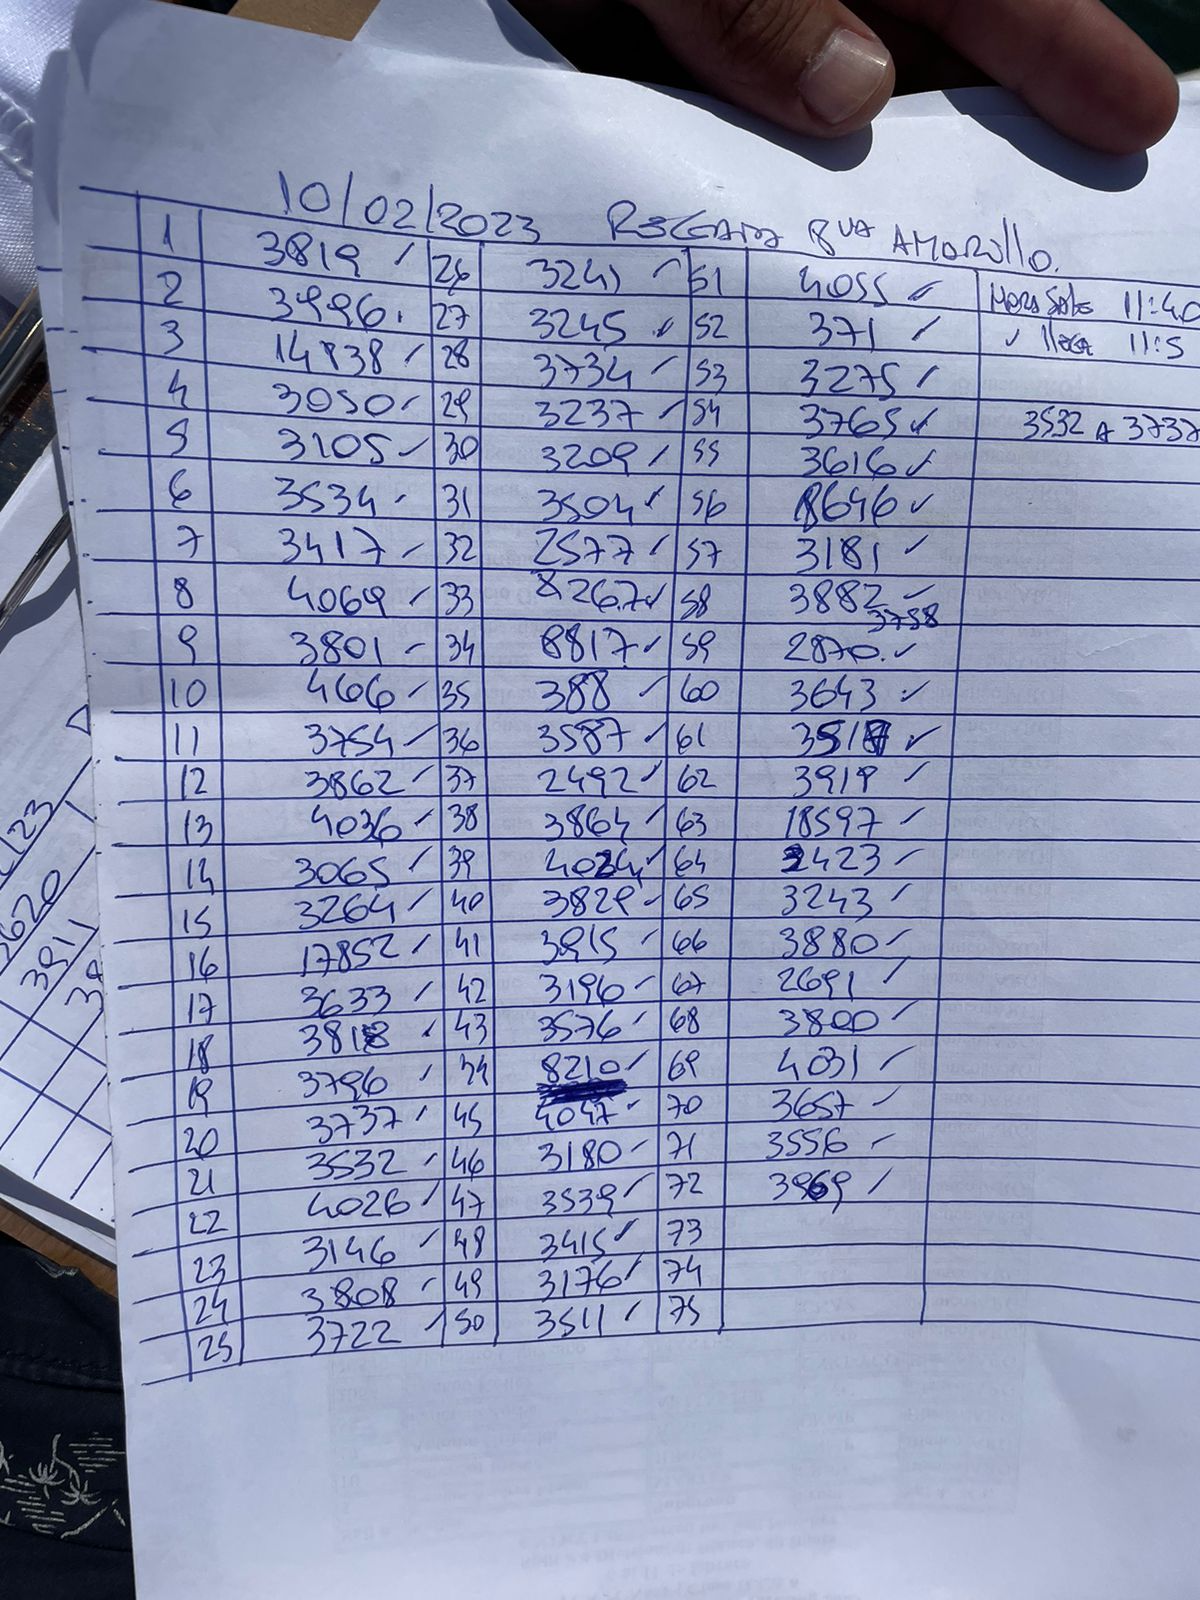 10/02/2023 REGATA 8VA AMARILLO.
1 3819 ✓ 26 3241 ✓ 51 4055 ✓ HORA SALE 11:40
2 3996. 27 3245 ✓ 52 371 ✓ ✓ llega 11:5
3 14838 ✓ 28 3734 ✓ 53 3275 ✓
4 3050 ✓ 29 3237 ✓ 54 3765 ✓ 3532 A 3737
5 3105 ✓ 30 3209 ✓ 55 3616 ✓
6 3534 ✓ 31 3504 ✓ 56 8646 ✓
7 3417 ✓ 32 2577 ✓ 57 3181 ✓
8 4069 ✓ 33 8267 ✓ 58 3882 ✓
3758
9 3801 ✓ 34 8817 ✓ 59 2870. ✓
10 466 ✓ 35 388 ✓ 60 3643 ✓
11 3754 ✓ 36 3587 ✓ 61 ✓
12 3862 ✓ 37 2492 ✓ 62 3919 ✓
13 4036 ✓ 38 3864 ✓ 63 18597 ✓
14 3065 ✓ 39 4024 ✓ 64 2423 ✓
15 3264 ✓ 40 3829 ✓ 65 3243 ✓
16 17852 ✓ 41 3915 ✓ 66 3880 ✓
17 3633 ✓ 42 3196 ✓ 67 2691 ✓
18 3818 ✓ 43 3576 ✓ 68 3800 ✓
19 3796 ✓ 34 8210 ✓ 69 4031 ✓
20 3737 ✓ 45 4047 ✓ 70 3657 ✓
21 3532 ✓ 46 3180 ✓ 71 3556 ✓
22 4026 ✓ 47 3539 ✓ 72 3969 ✓
23 3146 ✓ 48 3415 ✓ 73
24 3808 ✓ 49 3176 ✓ 74
25 3722 ✓ 50 3511 ✓ 75
3620
3911